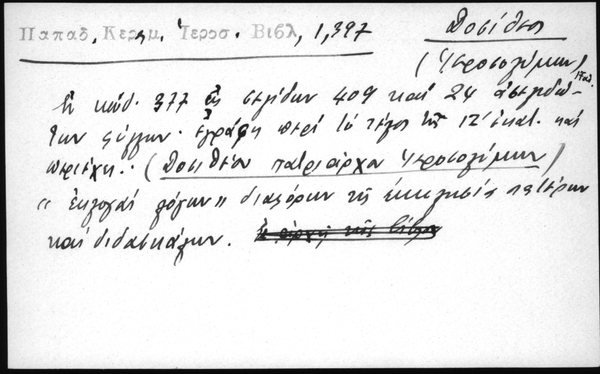 Παπαδ. Κεραμ. Ἱεροσ. Βιβλ, 1,397
Δοσίθεος
(Ἱεροσολύμων)
Ὁ κώδ. 377 ἐκ σελίδων 409 καὶ 24 ἀσελιδώ-
των φύλλων. ἐγράφη περὶ τὸ τέλος τῆς ΙΖ΄ ἑκατ. καὶ
περιέχει. (Δοσιθέου πατριάρχου Ἱεροσολύμων)
« Ἐκλογαὶ λόγων » διαφόρων τῆς ἐκκλησίας πατέρων
καὶ διδασκάλων.